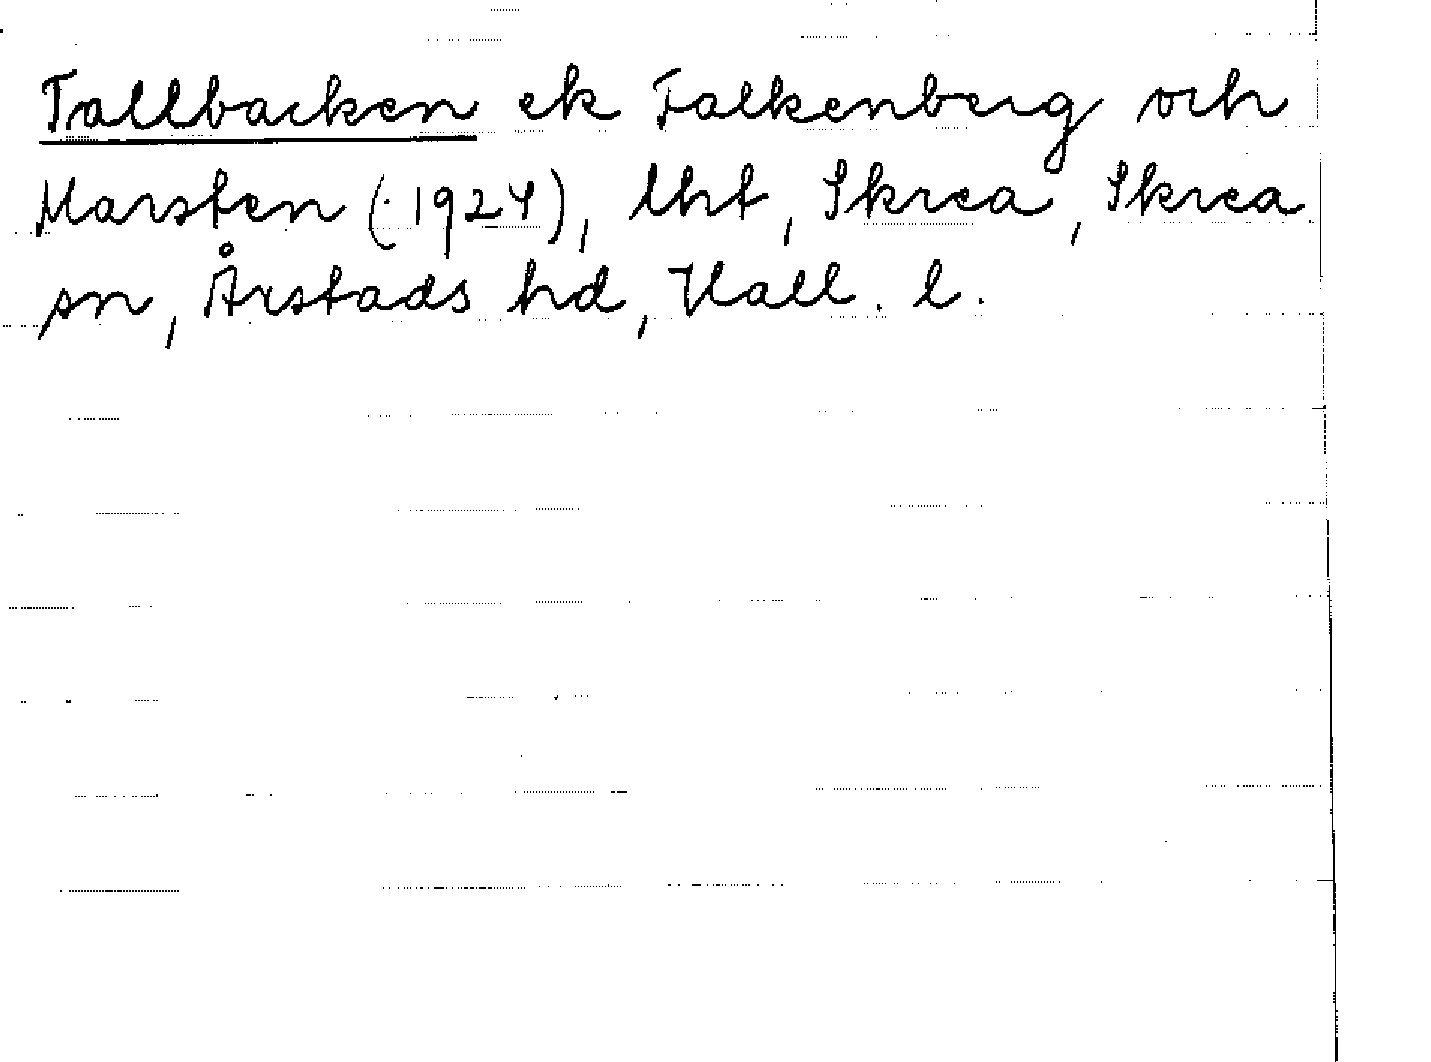 Tallbacken ek Falkenberg och
Marsten (. 1924), lht, Skrea, Skrea
sn, Årstads hd, Hall. l.